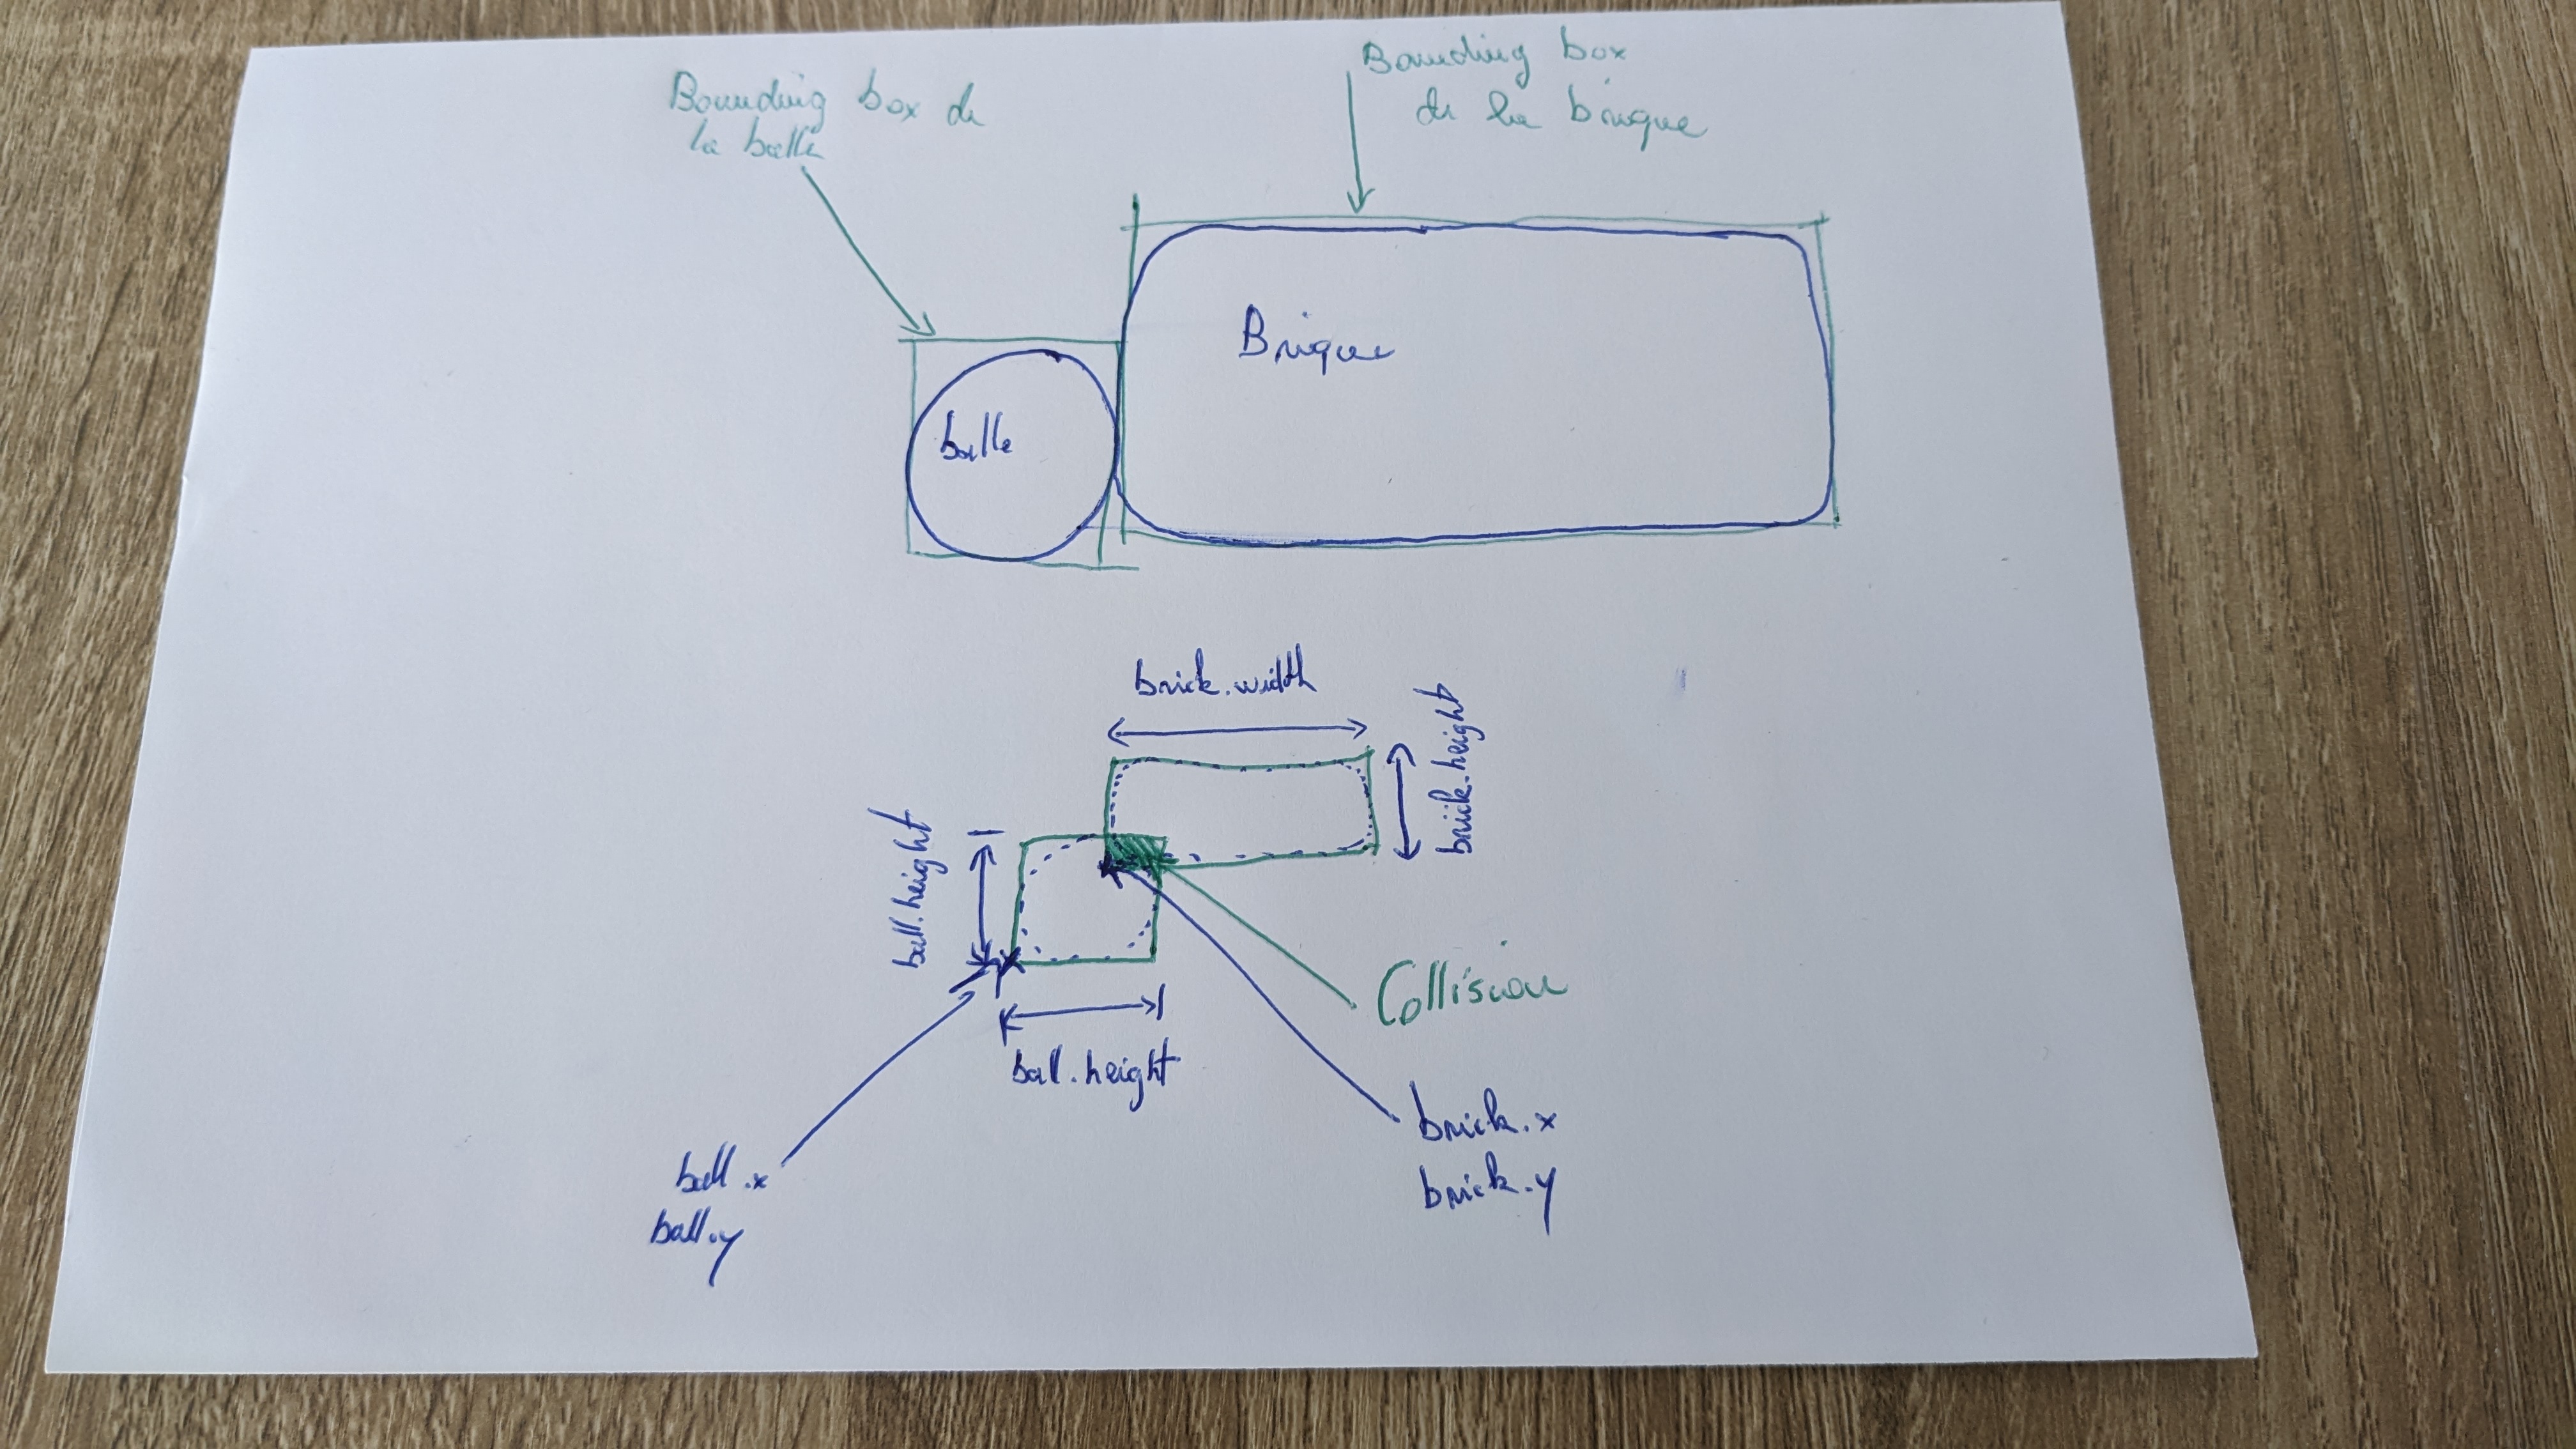 Bounding box de
la balle
Bounding box
de la brique
Brique
balle
brick.width
brick.height
ball.height
Collision
ball.height
brick.x
brick.y
ball.x
ball.y